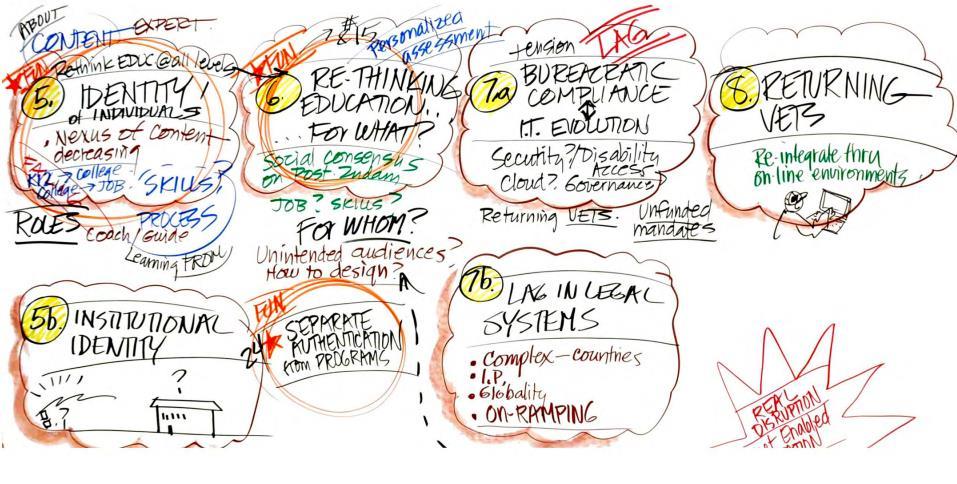 ABOUT
CONTENT EXPERT
FUN
Rethink EDUC @ all levels
5. IDENTITY
of INDIVIDUALS
• Nexus of Content
decreasing
K12 → college
College → JOB
"SKILLS?
ROLES
PROCESS
Coach/Guide
Learning FROM
#15
Personalized
assessment
FUN
6. RE-THINKING
EDUCATION...
... FOR WHAT?
Social consensus
on Post Indus.
JOB? SKILLS?
FOR WHOM?
Unintended audiences?
How to design?
tension
LAG
7.a BUREACRATIC
COMPLIANCE
I.T. EVOLUTION
Secutity?/Disability
ACCESS
Cloud? Governance
Returning VETS.
Unfunded
mandates
8. RETURNING
VETS
Re-integrate thru
on-line environments
5b. INSTITUTIONAL
IDENTITY
?
?
FUN
24
SEPARATE
AUTHENTICATION
from PROGRAMS
7b. LAG IN LEGAL
SYSTEMS
• Complex-countries
• I.P.
• Globality
• ON-RAMPING
REAL
DISRUPTION
Enabled